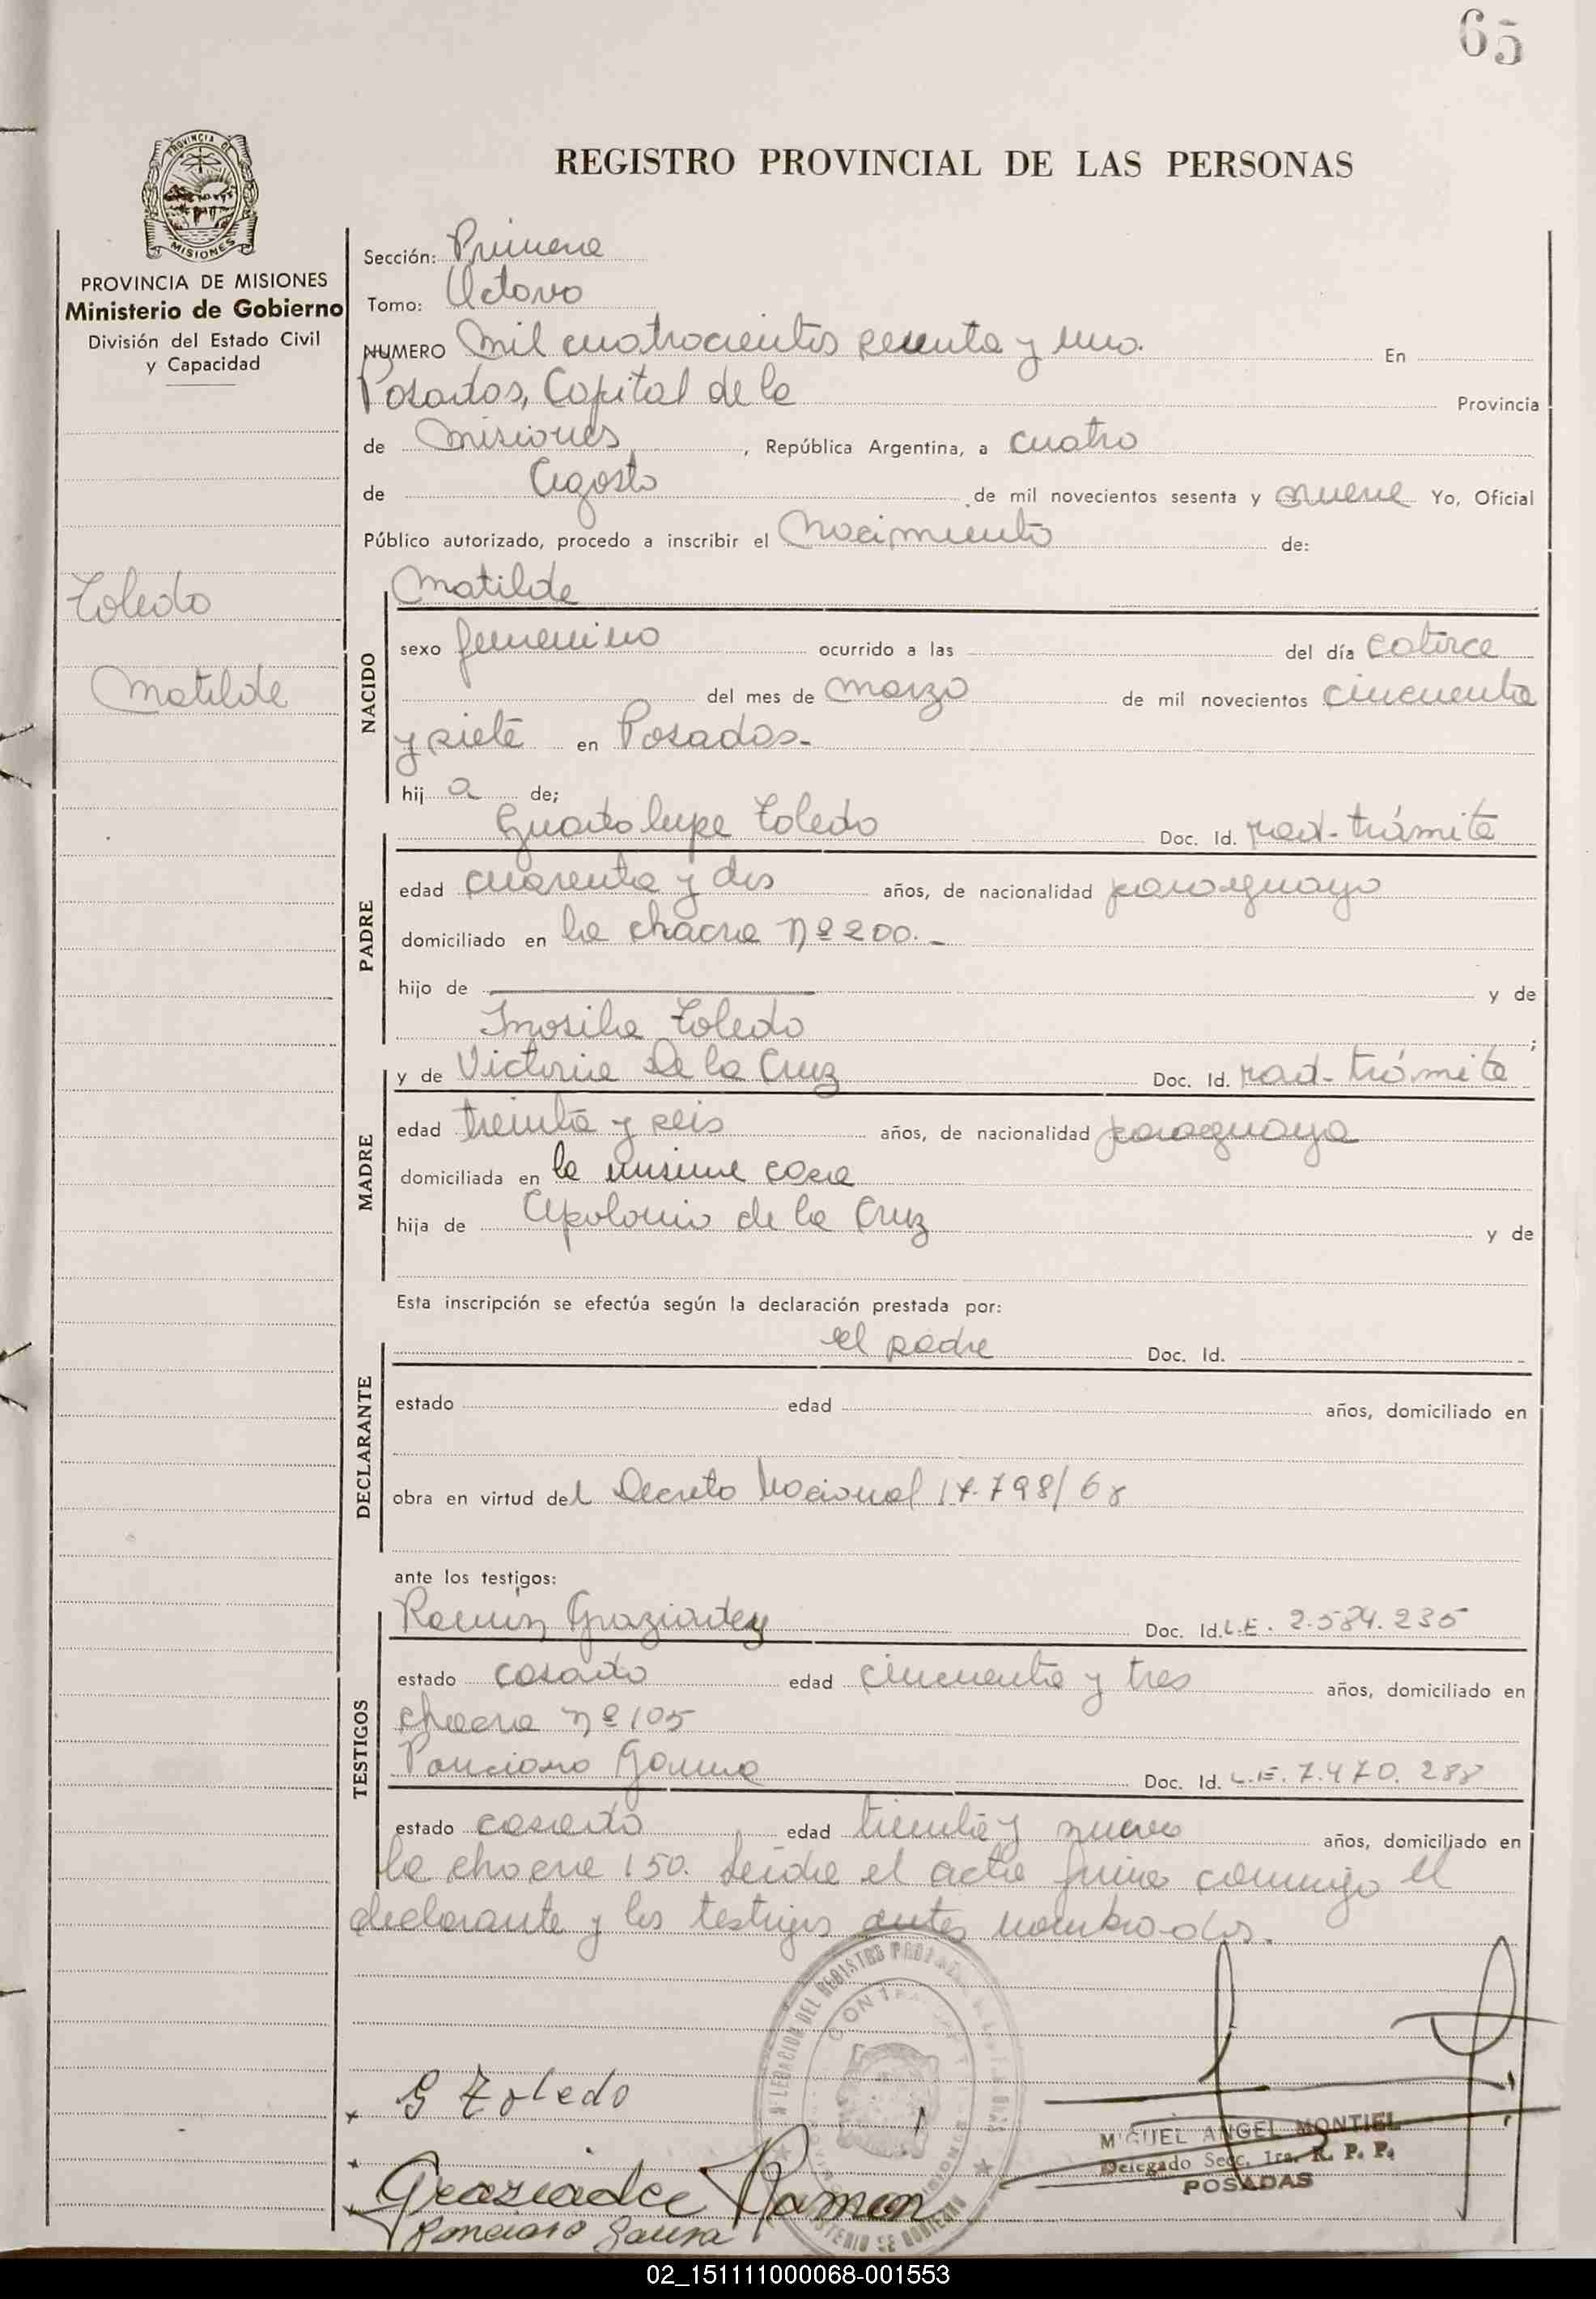 65
REGISTRO PROVINCIAL DE LAS PERSONAS
PROVINCIA DE MISIONES
Ministerio de Gobierno
División del Estado Civil
y Capacidad
Toledo
Matilde
Sección: Primera
Tomo: Octavo
NUMERO Mil cuatrocientos sesenta y uno. En
Posadas, Capital de la Provincia
de Misiones, República Argentina, a cuatro
de Agosto de mil novecientos sesenta y nueve Yo, Oficial
Público autorizado, procedo a inscribir el Nacimiento de:
NACIDO
Matilde
sexo femenino ocurrido a las del día catorce
del mes de marzo de mil novecientos cincuenta
y siete en Posadas.-
hij a de;
PADRE
Guadalupe Toledo Doc. Id. rad-trámite
edad cuarenta y dos años, de nacionalidad paraguayo
domiciliado en la chacra nº 200.-
hijo de y de
Toledo ;
MADRE
y de Victoria De la Cruz Doc. Id. rad-trámite
edad treinta y seis años, de nacionalidad paraguaya
domiciliada en la misma casa
hija de Apolonio de la Cruz y de
Esta inscripción se efectúa según la declaración prestada por:
DECLARANTE
el padre Doc. Id.
estado edad años, domiciliado en
obra en virtud del Decreto Nacional 17.798/68
ante los testigos:
TESTIGOS
Ramón Graziadey Doc. Id. L.E. 2.584.235
estado casado edad cincuenta y tres años, domiciliado en
chacra nº 105
Ponciano Gauna Doc. Id. L.E. 7.470.288
estado casado edad treinta y nueve años, domiciliado en
la chacra 150. Leída el acta firma conmigo el
declarante y los testigos antes nombrados.
G Toledo
Graziadei Ramon
Ponciano Gauna
MIGUEL ANGEL MONTIEL
Delegado Secc. 1ra. R. P. P.
POSADAS
02_151111000068-001553